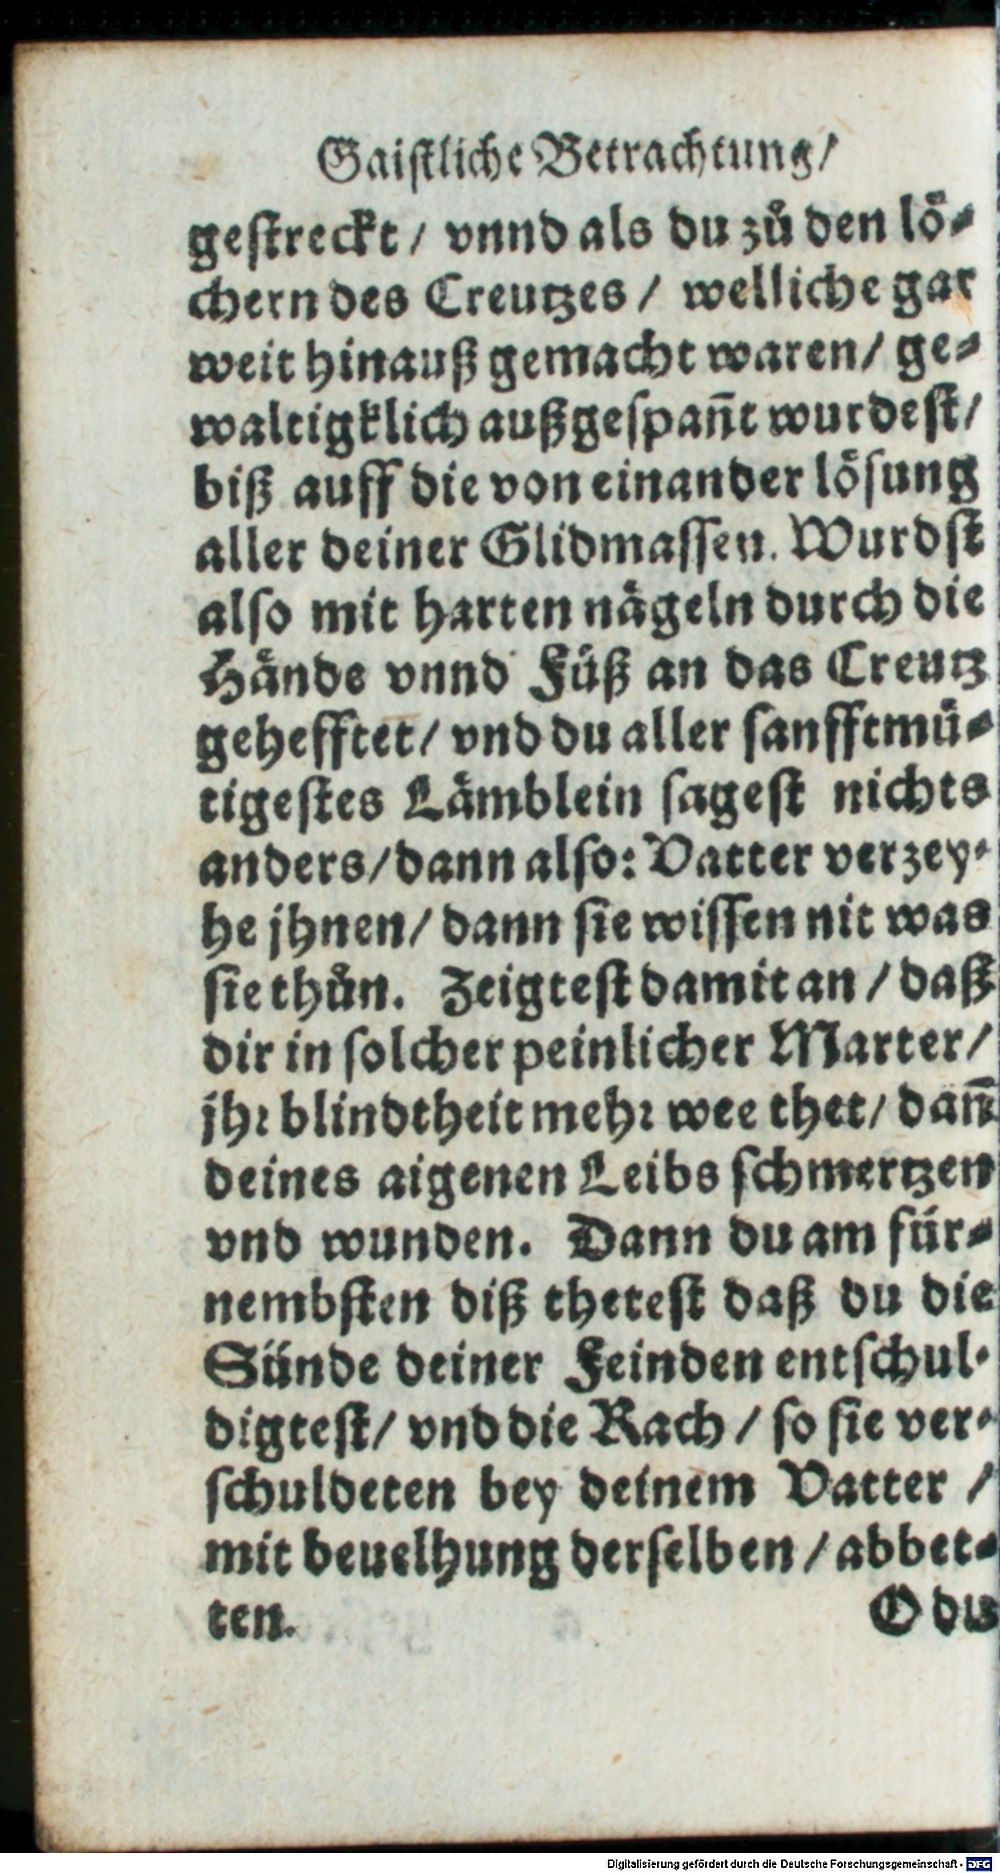 Gaistliche Betrachtung/
gestreckt / vnnd als du zů den lö-
chern des Creutzes / welliche gar
weit hinauß gemacht waren/ ge-
waltigklich außgespañt wurdest/
biß auff die von einander lösung
aller deiner Glidmassen. Wurdst
also mit harten nägeln durch die
Hände vnnd Füß an das Creutz
gehefftet/ vnd du aller sanfftmü-
tigestes Lämblein sagest nichts
anders/dann also: Vatter verzey-
he jhnen/ dann sie wissen nit was
sie thůn. Zeigtest damit an / daß
dir in solcher peinlicher Marter/
jhr blindtheit mehr wee thet/ dañ
deines aigenen Leibs schmertzen
vnd wunden. Dann du am für-
nembsten diß thetest daß du die
Sünde deiner Feinden entschul-
digtest/ vnd die Rach / so sie ver-
schuldeten bey deinem Vatter /
mit beuelhung derselben / abbet-
ten. O du
Digitalisierung gefördert durch die Deutsche Forschungsgemeinschaft - DFG